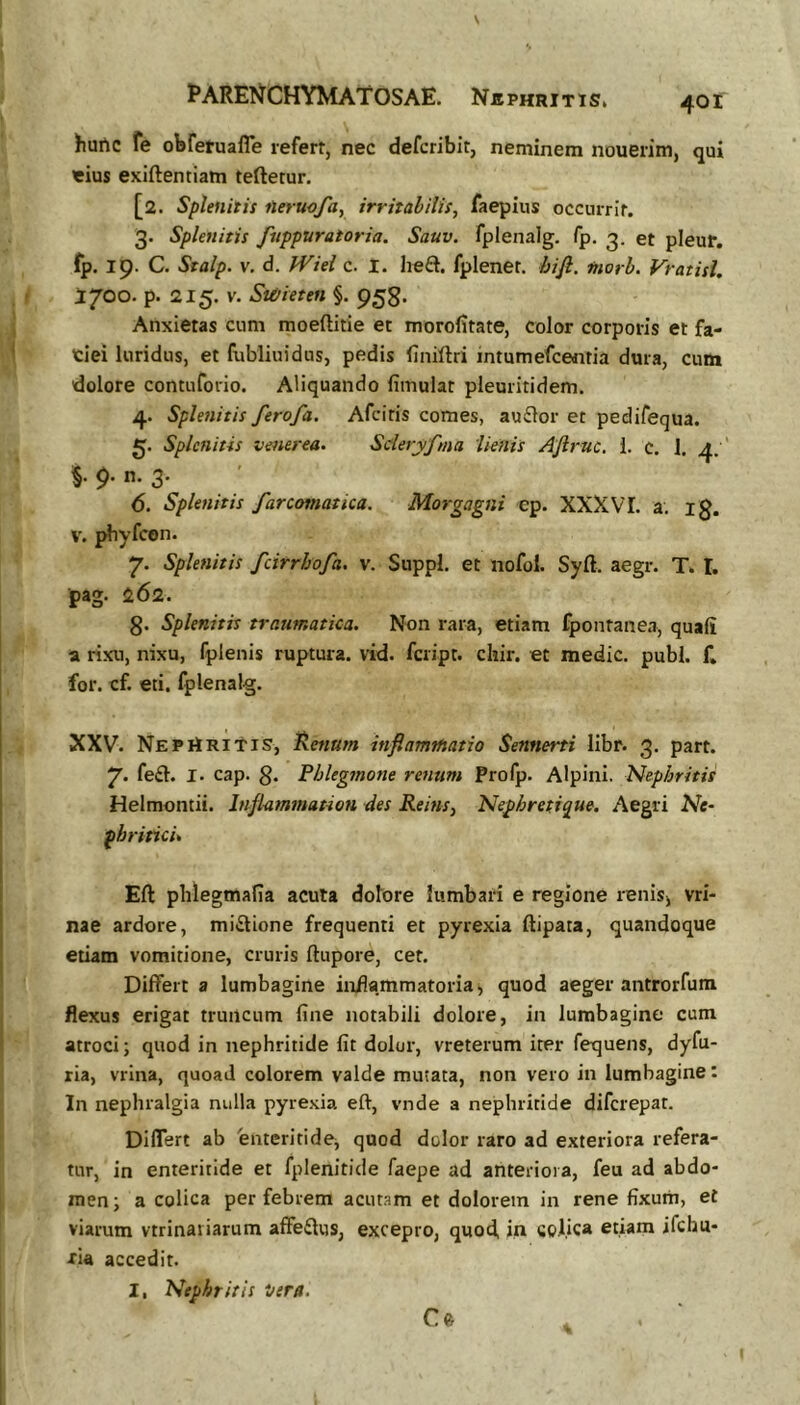 PARENCHYMATOSAE. NEPHRITIS. 401
hunc ſe obſeruaſſe refert, nec deſcribit, neminem nouerim, qui
eius exiſtentiam teſtetur.
[2. Splenitis neruoſa, irritabilis, ſaepius occurrit.
3. Splenitis ſuppuratoria. Sauv. ſplenalg. ſp. 3. et pleur.
ſp. 19. C. Stalp. v. d. Wiel c. 1. hect. ſplenet. hiſt. morb. Vratisl.
1700. p. 215. v. Swieten §. 958.
Anxietas cum moeſtitie et moroſitate, color corporis et fa-
ciei luridus, et ſubliuidus, pedis ſiniſtri intumeſcentia dura, cum
dolore contuſorio. Aliquando ſimulat pleuritidem.
4. Splenitis ſeroſa. Aſcitis comes, auctor et pediſequa.
5. Splenitis venerea. Scleryſma lienis Aſtruc. l. c. l. 4.
§. 9. n. 3.
6. Splenitis ſarcomatica. Morgagni ep. XXXVI. a. 18.
v. phyſcon.
7. Splenitis ſcirrhoſa. v. Suppl. et noſol. Syſt. aegr. T. I.
pag. 262.
8. Splenitis traumatica. Non rara, etiam ſpontanea, quaſi
a rixu, nixu, ſplenis ruptura. vid. ſcript. chir. et medic. publ. ſ.
for. cf. eti. ſplenalg.
XXV. NEPHRITIS, Renum inflammatio Sennerti libr. 3. part.
7. ſect. 1. cap. 8. Phlegmone renum Proſp. Alpini. Nephritis
Helmontii. Inflammation des Reins, Nephretique. Aegri Ne-
phritici.
Eſt phlegmaſia acuta dolore lumbari e regione renis, vri-
nae ardore, mictione frequenti et pyrexia ſtipata, quandoque
etiam vomitione, cruris ſtupore, cet.
Differt a lumbagine inflammatoria, quod aeger antrorſum
flexus erigat truncum ſine notabili dolore, in lumbagine cum
atroci; quod in nephritide ſit dolor, vreterum iter ſequens, dyſu-
ria, vrina, quoad colorem valde mutata, non vero in lumbagine:
In nephralgia nulla pyrexia eſt, vnde a nephritide diſcrepat.
Differt ab enteritide, quod dolor raro ad exteriora refera-
tur, in enteritide et ſplenitide ſaepe ad anteriora, ſeu ad abdo-
men; a colica per febrem acutam et dolorem in rene fixum, et
viarum vtrinariarum affectus, excepro, quod in colica etiam iſchu-
ria accedit.
1. Nephritis vera.
Cc